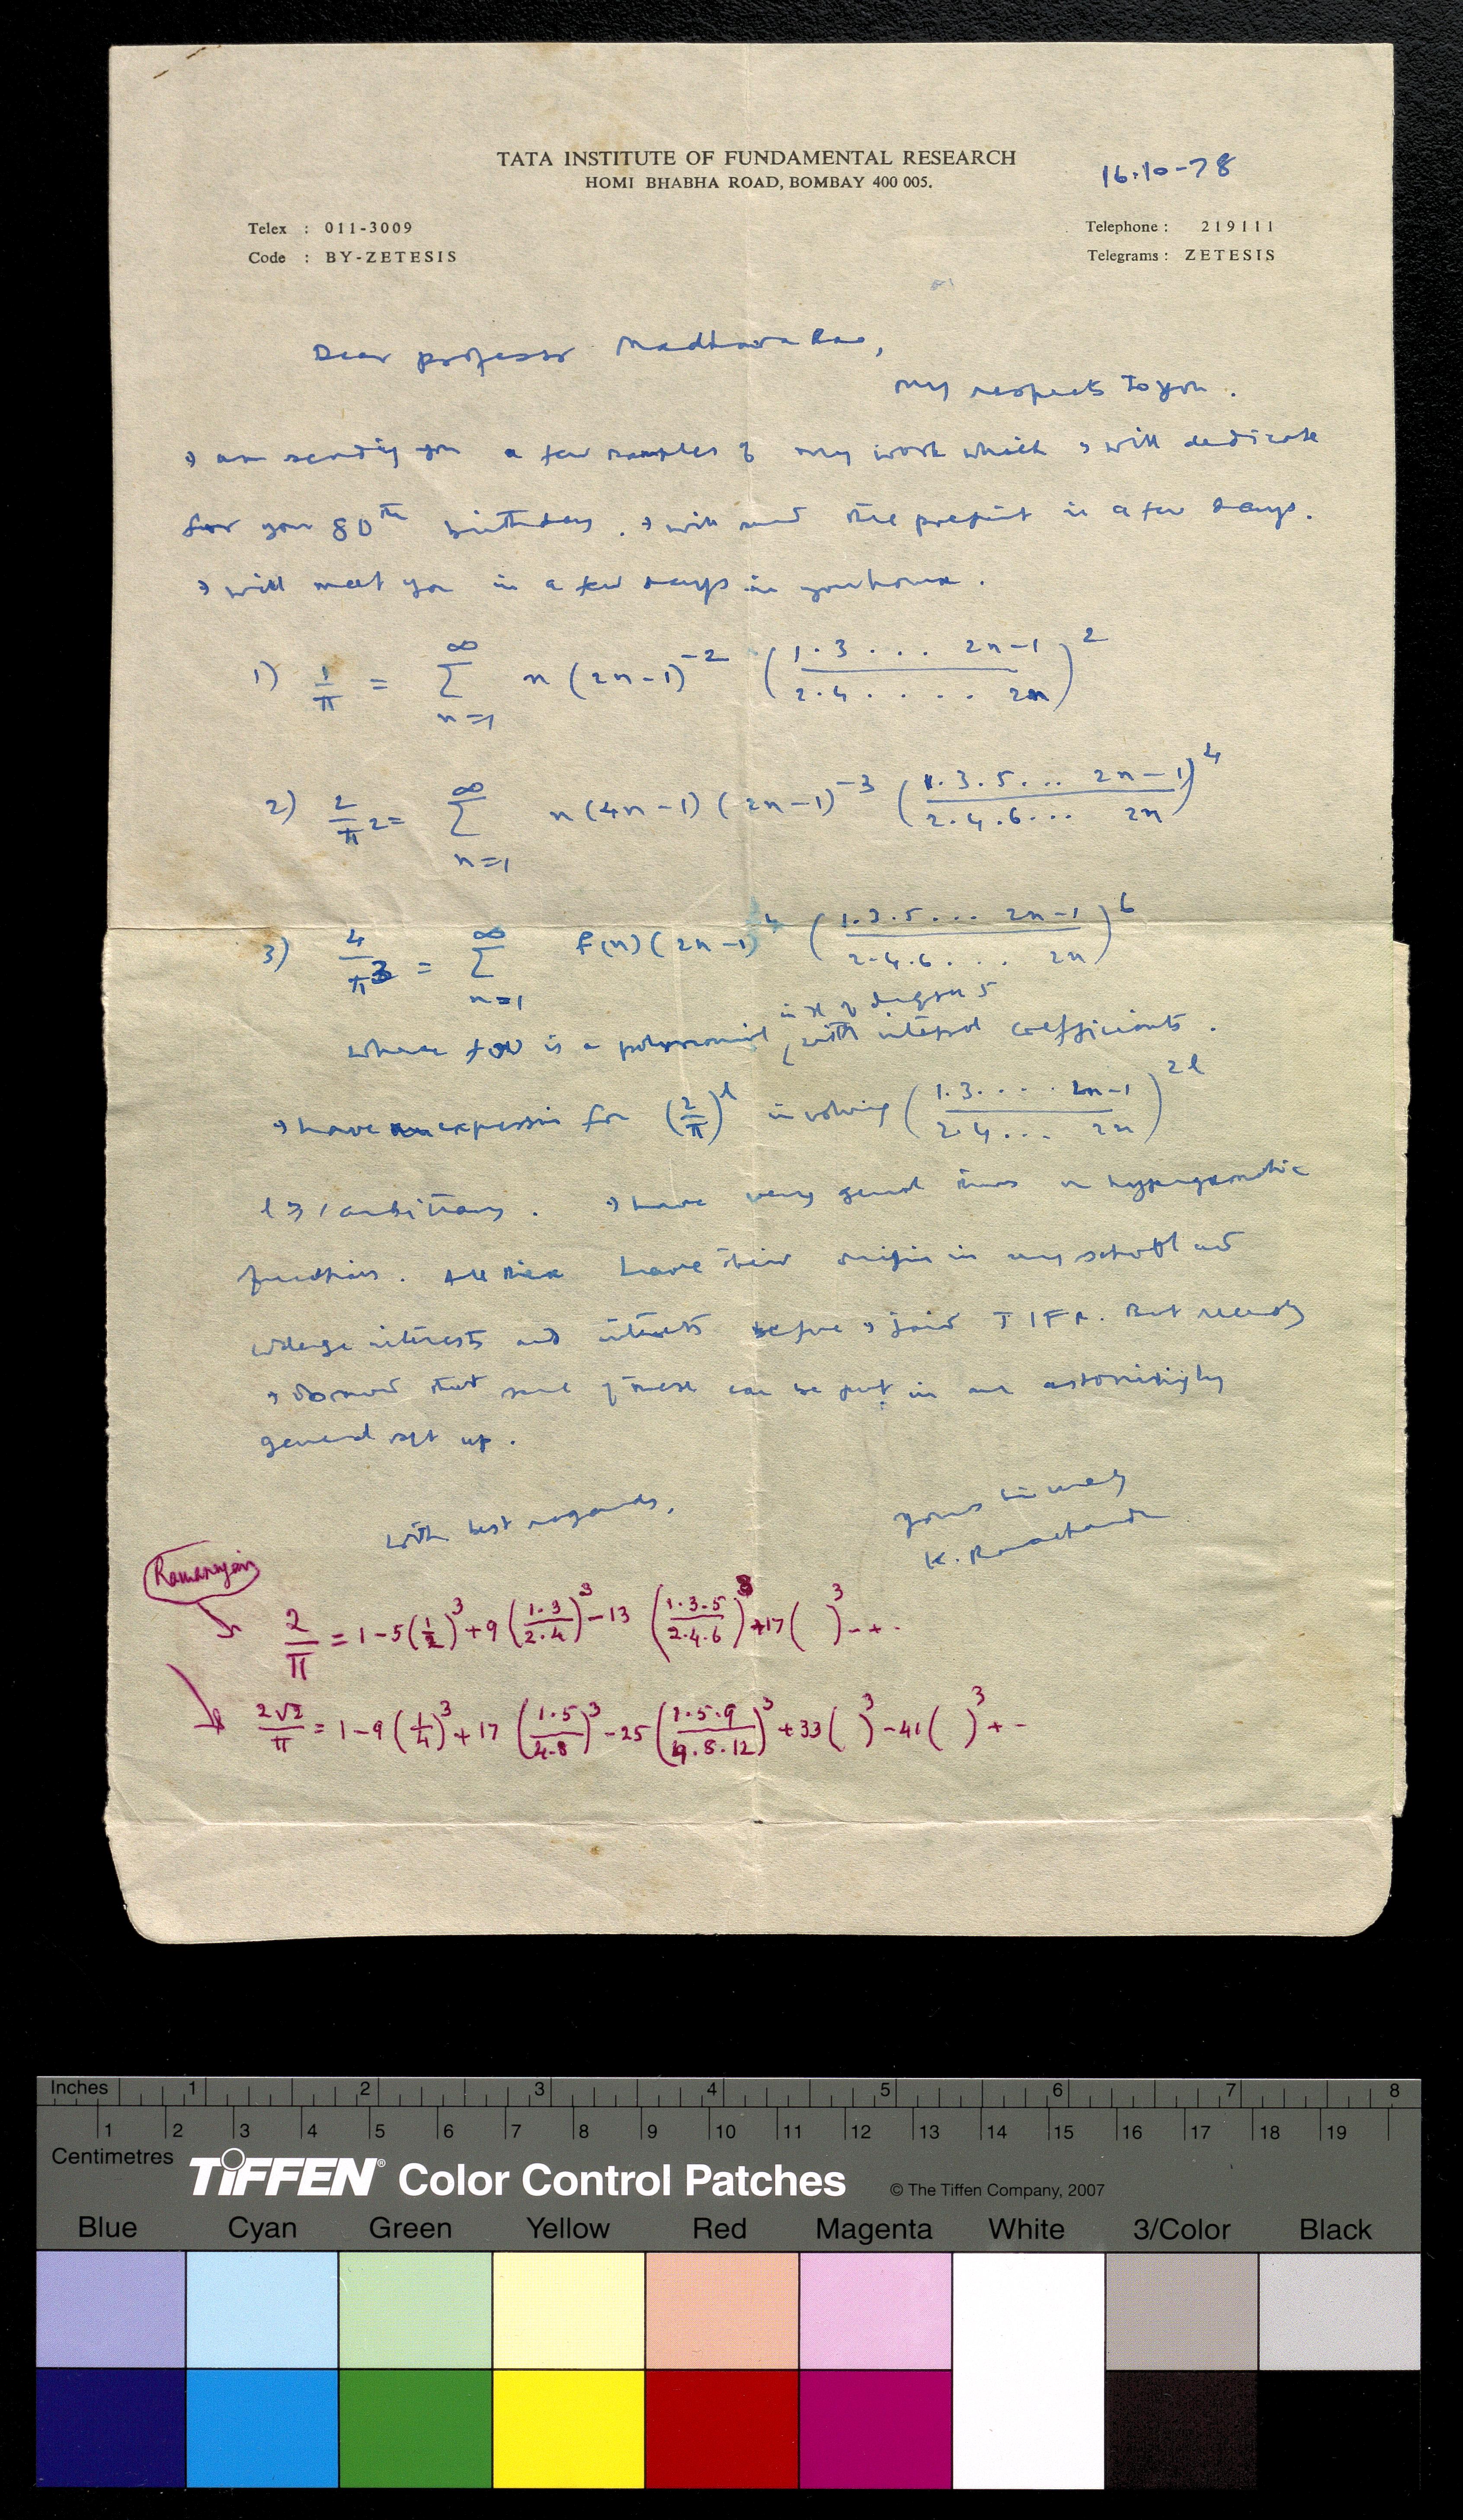 TATA INSTITUTE OF FUNDAMENTAL RESEARCH
HOMI BHABHA ROAD, BOMBAY 400 005.
16.10-78
Telex : 011-3009
Telephone : 219111
Code : BY-ZETESIS
Telegrams : ZETESIS
Dear professor Madhava Rao,
my respects to you.
I am sending you a few samples of my work which I will dedicate
for your 80th birthday. I will send the preprint in a few days.
I will meet you in a few days in your house.
1) 1/π = ∑_{n=1}^{∞} n (2n-1)^{-2} (1.3 ... 2n-1 / 2.4 .... 2n)^2
2) 2/π^2 = ∑_{n=1}^{∞} n(4n-1)(2n-1)^{-3} (1.3.5... 2n-1 / 2.4.6... 2n)^4
3) 4/π^3 = ∑_{n=1}^{∞} f(n)(2n-1)^4 (1.3.5... 2n-1 / 2.4.6... 2n)^6
in n of degree 5
where f(n) is a polynomial with integral coefficients.
I have expression for (2/π)^l involving (1.3.... 2n-1 / 2.4... 2n)^{2l}
l ≥ 1 arbitrary. I have very general on hypergeometric
functions. All these have their origin in my school and
college interests and interests before I joined TIFR. But recently
I observed that some of these can be put in an astonishingly
general set up.
with best regards,
yours sincerely
K. Ramachandra
Ramanujan
2/π = 1-5(1/2)^3+9(1.3/2.4)^3-13(1.3.5/2.4.6)^3+17( )^3-+.
2√2/π = 1-9(1/4)^3+17(1.5/4.8)^3-25(1.5.9/4.8.12)^3+33( )^3-41( )^3+-
Inches 1 2 3 4 5 6 7 8
1 2 3 4 5 6 7 8 9 10 11 12 13 14 15 16 17 18 19
Centimetres
TIFFEN® Color Control Patches © The Tiffen Company, 2007
Blue Cyan Green Yellow Red Magenta White 3/Color Black